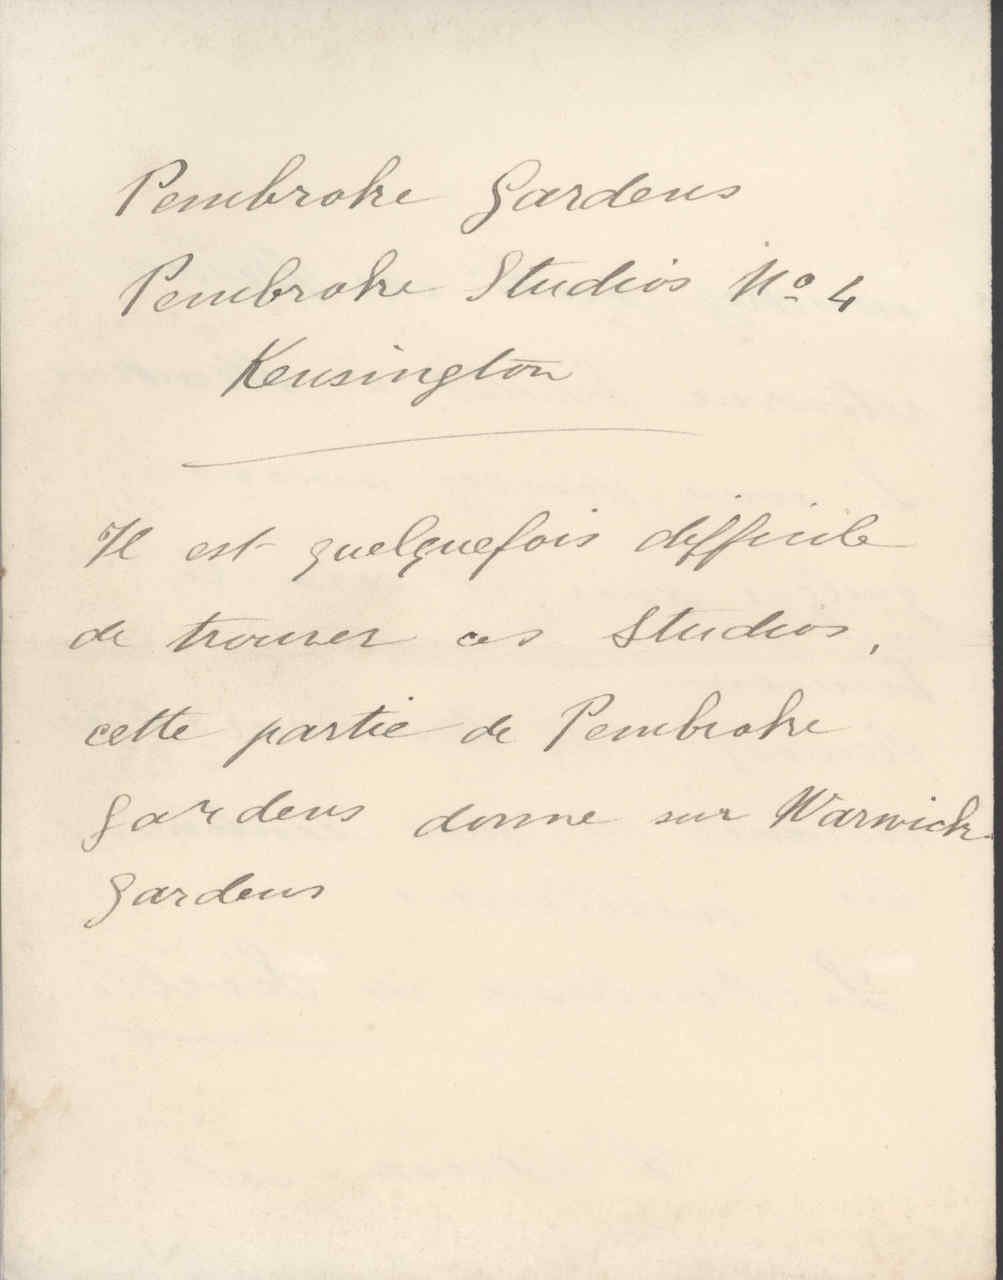 Pembroke Gardens
Pembroke Studios No 4
Kensington
Il est quelquefois difficile
de trouver ces Studios,
cette partie de Pembroke
Gardens donne sur Warwick
Gardens